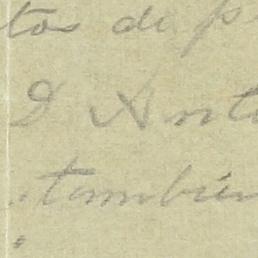 tos de p
D Anto
también